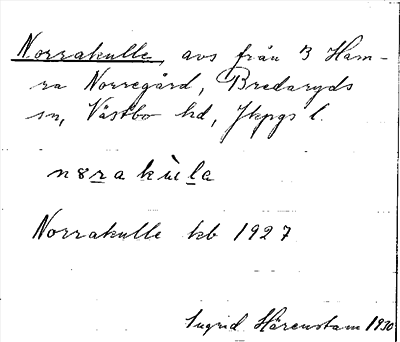 Norrakulle, avs från B Ham-
ra Norregård, Bredaryds
sn, Västbo hd, Jkpgs l.
nɵra kùla
Norrakulle kb 1927
Ingrid Härenstam 1930